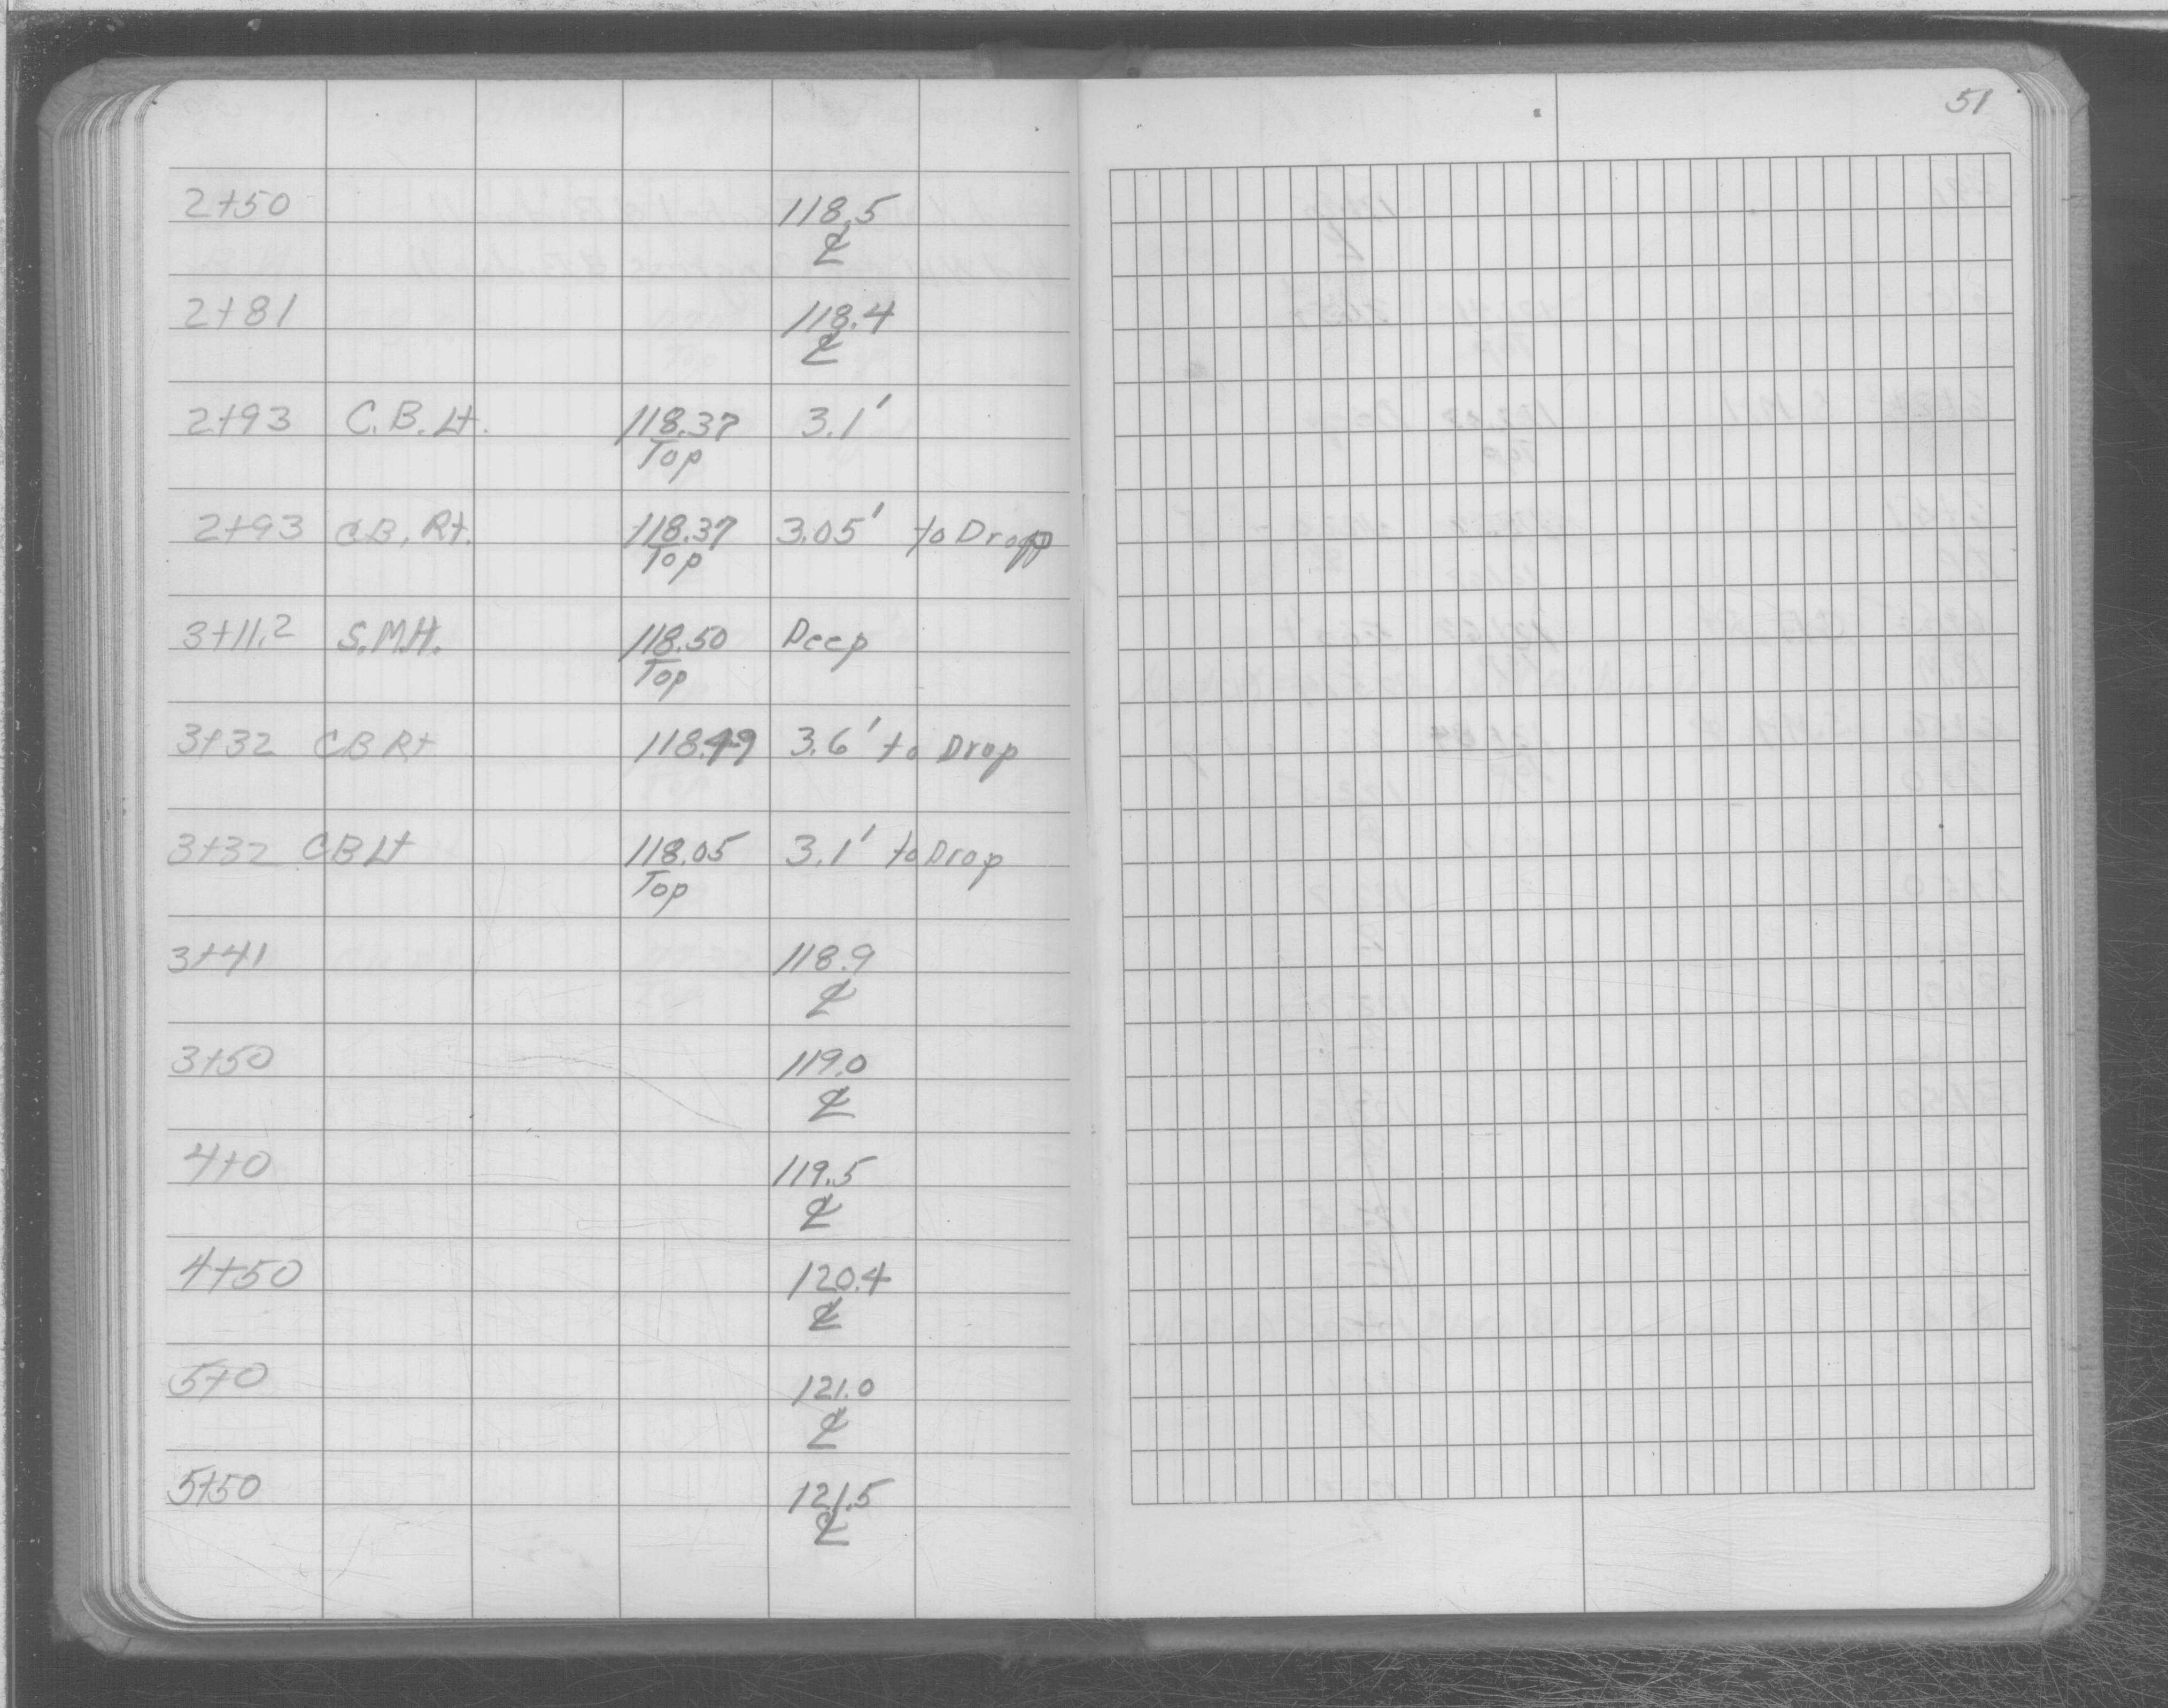 51
2+50 118.5
℄
2+81 118.4
℄
2+93 C.B. Lt. 118.37 3.1'
Top
2+93 C.B. Rt. 118.37 3.05' to Drop
Top
3+11.2 S.M.H. 118.50 Deep
Top
3+32 CB Rt 118.49 3.6' to Drop
3+32 CB Lt 118.05 3.1' to Drop
Top
3+41 118.9
℄
3+50 119.0
℄
4+0 119.5
℄
4+50 120.4
℄
5+0 121.0
℄
5+50 121.5
℄